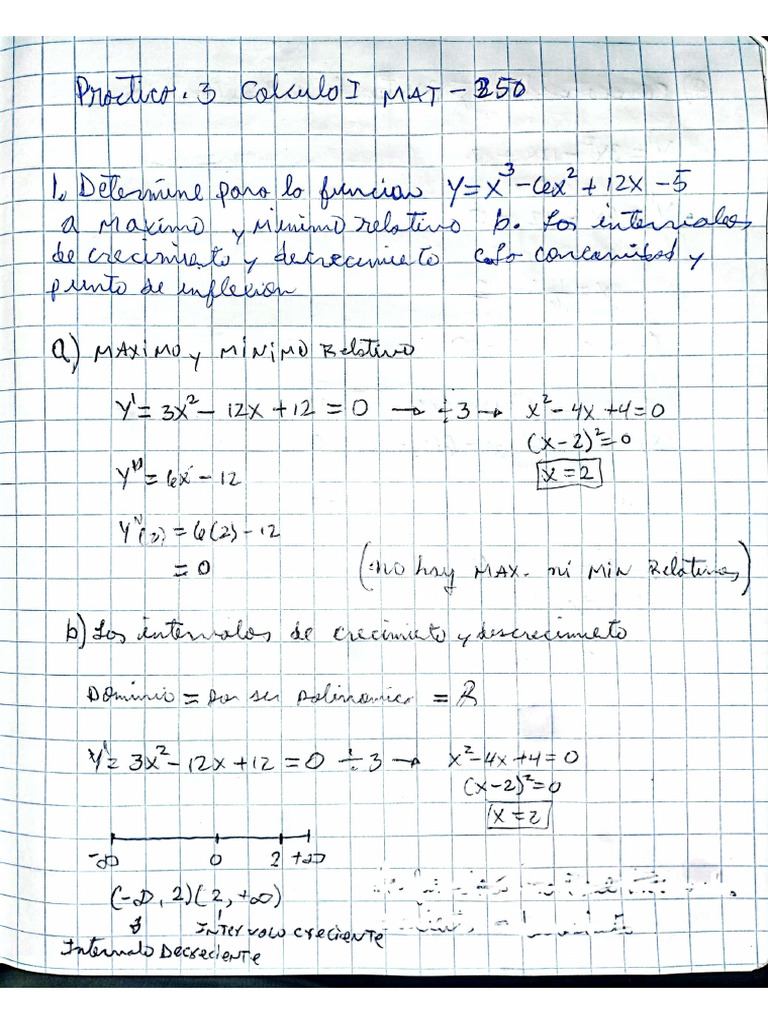 Practico. 3 Calculo I MAT - 250
1. Determine para la funcion y = x³ - 6x² + 12x - 5
a Maximo y Minimo relativo b. Los intervalos
de crecimiento y decrecimiento c. La concavidad y
punto de inflexion
a) MAXIMO y MINIMO Relativo
y' = 3x² - 12x + 12 = 0 → ÷3 → x² - 4x + 4 = 0
(x-2)² = 0
x = 2
y'' = 6x - 12
y''(2) = 6(2) - 12
= 0 (no hay MAX. ni MIN Relativos)
b) Los intervalos de crecimiento y descrecimiento
Dominio = por ser polinomica = R
y' = 3x² - 12x + 12 = 0 ÷ 3 → x² - 4x + 4 = 0
(x-2)² = 0
x = 2
-∞ 0 2 +∞
(-∞, 2)(2, +∞)
INTERVALO CRECIENTE
Intervalo Decreciente